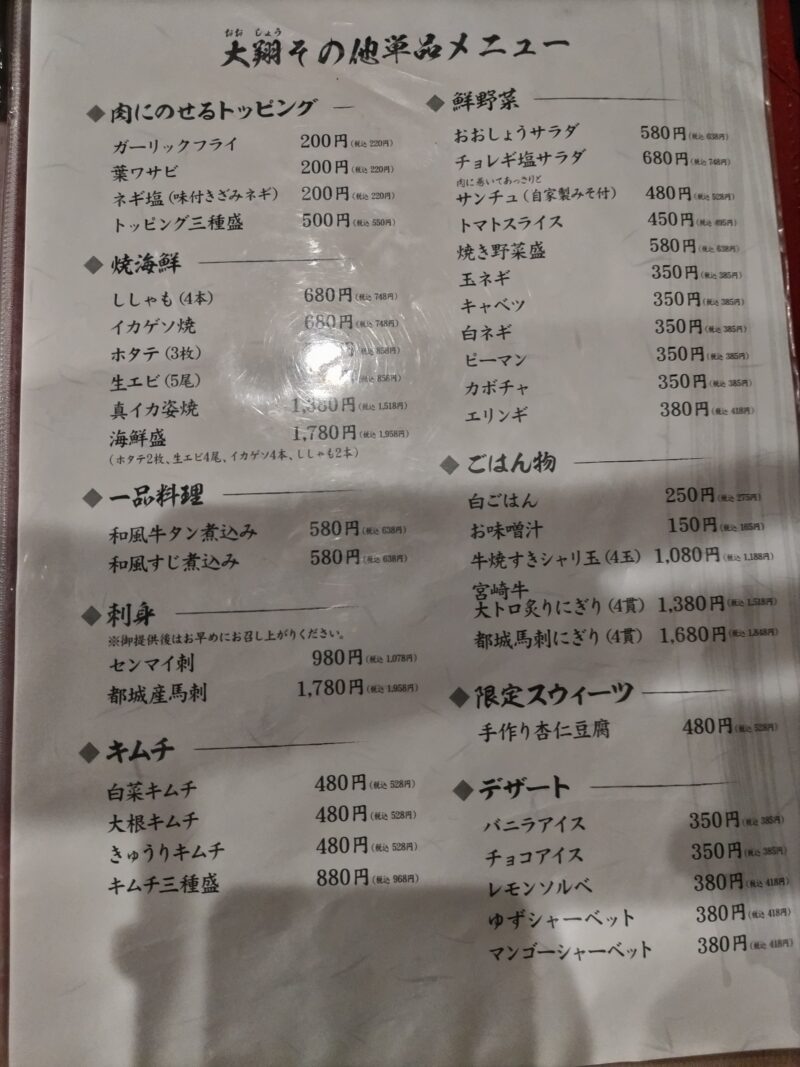 おお しょう
大翔その他単品メニュー
◆肉にのせるトッピング
ガーリックフライ 200円(税込 220円)
葉ワサビ 200円(税込 220円)
ネギ塩(味付きざみネギ) 200円(税込 220円)
トッピング三種盛 500円(税込 550円)
◆焼海鮮
ししゃも(4本) 680円(税込 748円)
イカゲソ焼 680円(税込 748円)
ホタテ(3枚) 円(税込 858円)
生エビ(5尾) (税込 858円)
真イカ姿焼 1,380円(税込 1,518円)
海鮮盛 1,780円(税込 1,958円)
(ホタテ2枚、生エビ4尾、イカゲソ4本、ししゃも2本)
◆一品料理
和風牛タン煮込み 580円(税込 638円)
和風すじ煮込み 580円(税込 638円)
◆刺身
※御提供後はお早めにお召し上がりください。
センマイ刺 980円(税込 1,078円)
都城産馬刺 1,780円(税込 1,958円)
◆キムチ
白菜キムチ 480円(税込 528円)
大根キムチ 480円(税込 528円)
きゅうりキムチ 480円(税込 528円)
キムチ三種盛 880円(税込 968円)
◆鮮野菜
おおしょうサラダ 580円(税込 638円)
チョレギ塩サラダ 680円(税込 748円)
肉に巻いてあっさりと
サンチュ(自家製みそ付) 480円(税込 528円)
トマトスライス 450円(税込 495円)
焼き野菜盛 580円(税込 638円)
玉ネギ 350円(税込 385円)
キャベツ 350円(税込 385円)
白ネギ 350円(税込 385円)
ピーマン 350円(税込 385円)
カボチャ 350円(税込 385円)
エリンギ 380円(税込 418円)
◆ごはん物
白ごはん 250円(税込 275円)
お味噌汁 150円(税込 165円)
牛焼すきシャリ玉(4玉) 1,080円(税込 1,188円)
宮崎牛
大トロ炙りにぎり(4貫) 1,380円(税込 1,518円)
都城馬刺にぎり(4貫) 1,680円(税込 1,848円)
◆限定スウィーツ
手作り杏仁豆腐 480円(税込 528円)
◆デザート
バニラアイス 350円(税込 385円)
チョコアイス 350円(税込 385円)
レモンソルベ 380円(税込 418円)
ゆずシャーベット 380円(税込 418円)
マンゴーシャーベット 380円(税込 418円)